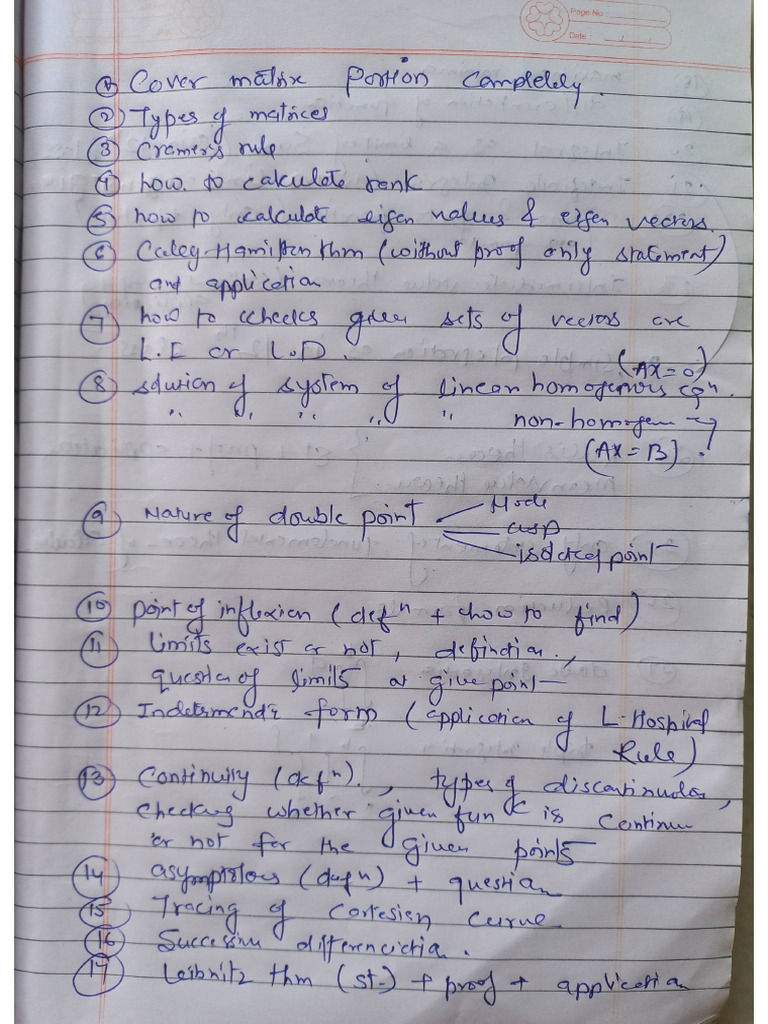 Page No :
Date : / /
① Cover matrix portion completely.
② Types of matrices
③ Cramer's rule
④ how to calculate rank
⑤ how to calculate eigen values & eigen vectors.
⑥ Caley-Hamilton thm (without proof only statement)
and application
⑦ how to checks given sets of vectors are
L.I or L.D.
(AX=0)
⑧ solution of system of linear homogenous eqⁿ.
" " " " " non-homogen
(AX=B).
⑨ Nature of double point Node
cusp
isolated point
⑩ point of inflexion (defⁿ + how to find)
⑪ limits exist or not, defination,
question of limits at give point
⑫ Indeterminate form (application of L-Hospital
Rule)
⑬ Continuity (defⁿ)., types of discontinuties,
checking whether given fun is continu
or not for the given points
⑭ asymptotous (defⁿ) + question
⑮ Tracing of Cartesian curve
⑯ Successive differenciation.
⑰ Leibnitz thm (st.) + proof + application